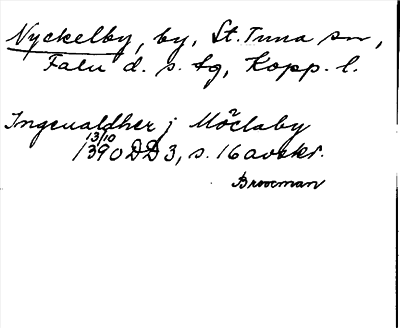 Nyckelby, by, St. Tuna sn,
Falu d. s. tg, Kopp. l.
Ingeualdher j Möclaby
13/10
1390 DD 3, s. 16 avskr.
Brooman